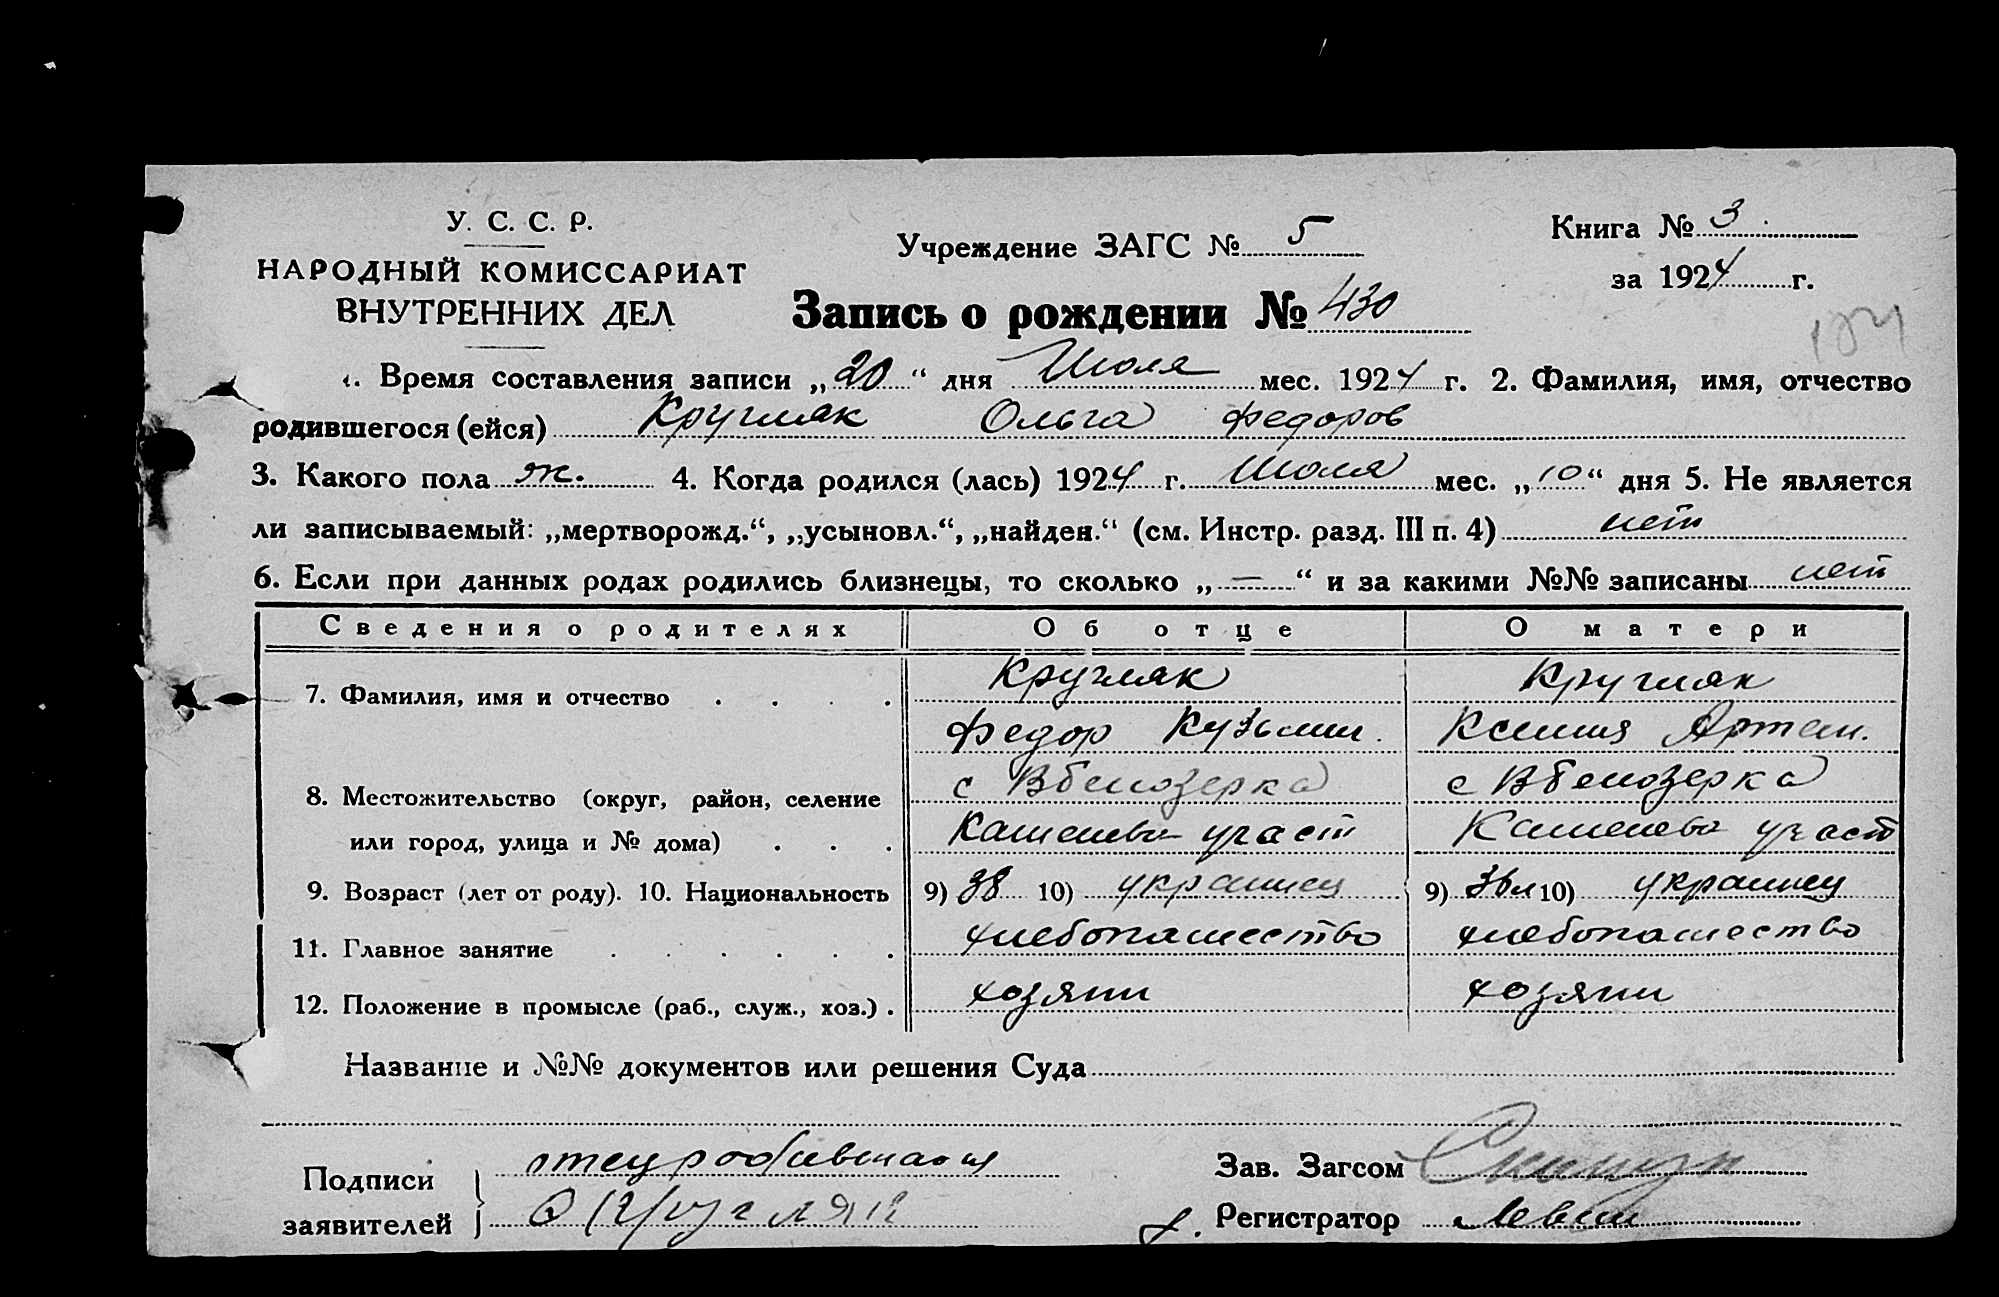 У. С. С. Р.
НАРОДНЫЙ КОМИССАРИАТ
ВНУТРЕННИХ ДЕЛ
Учреждение ЗАГС № 5
Книга № 3
за 1924 г.
Запись о рождении № 430
1. Время составления записи „20“ дня Июля мес. 1924 г. 2. Фамилия, имя, отчество
родившегося (ейся) Кругляк Ольга Федоров
3. Какого пола ж. 4. Когда родился (лась) 1924 г. Июля мес. „10“ дня 5. Не является
ли записываемый: „мертворожд.“, „усыновл.“, „найден.“ (см. Инстр. разд. III п. 4) нет
6. Если при данных родах родились близнецы, то сколько „—“ и за какими №№ записаны нет
Сведения о родителях Об отце О матери
7. Фамилия, имя и отчество . . . . Кругляк Кругляк
Федор Кузьмин. Ксения Артем.
8. Местожительство (округ, район, селение с Вбелозерка с Вбелозерка
или город, улица и № дома) . . . участ участ
9. Возраст (лет от роду). 10. Национальность 9) 38 10) украинец 9) 36л 10) украинец
11. Главное занятие . . . . . . хлебопашество хлебопашество
12. Положение в промысле (раб., служ., хоз.) . хозяин хозяин
Название и №№ документов или решения Суда
Подписи
заявителей
Кругляк
Зав. Загсом
Регистратор Левин